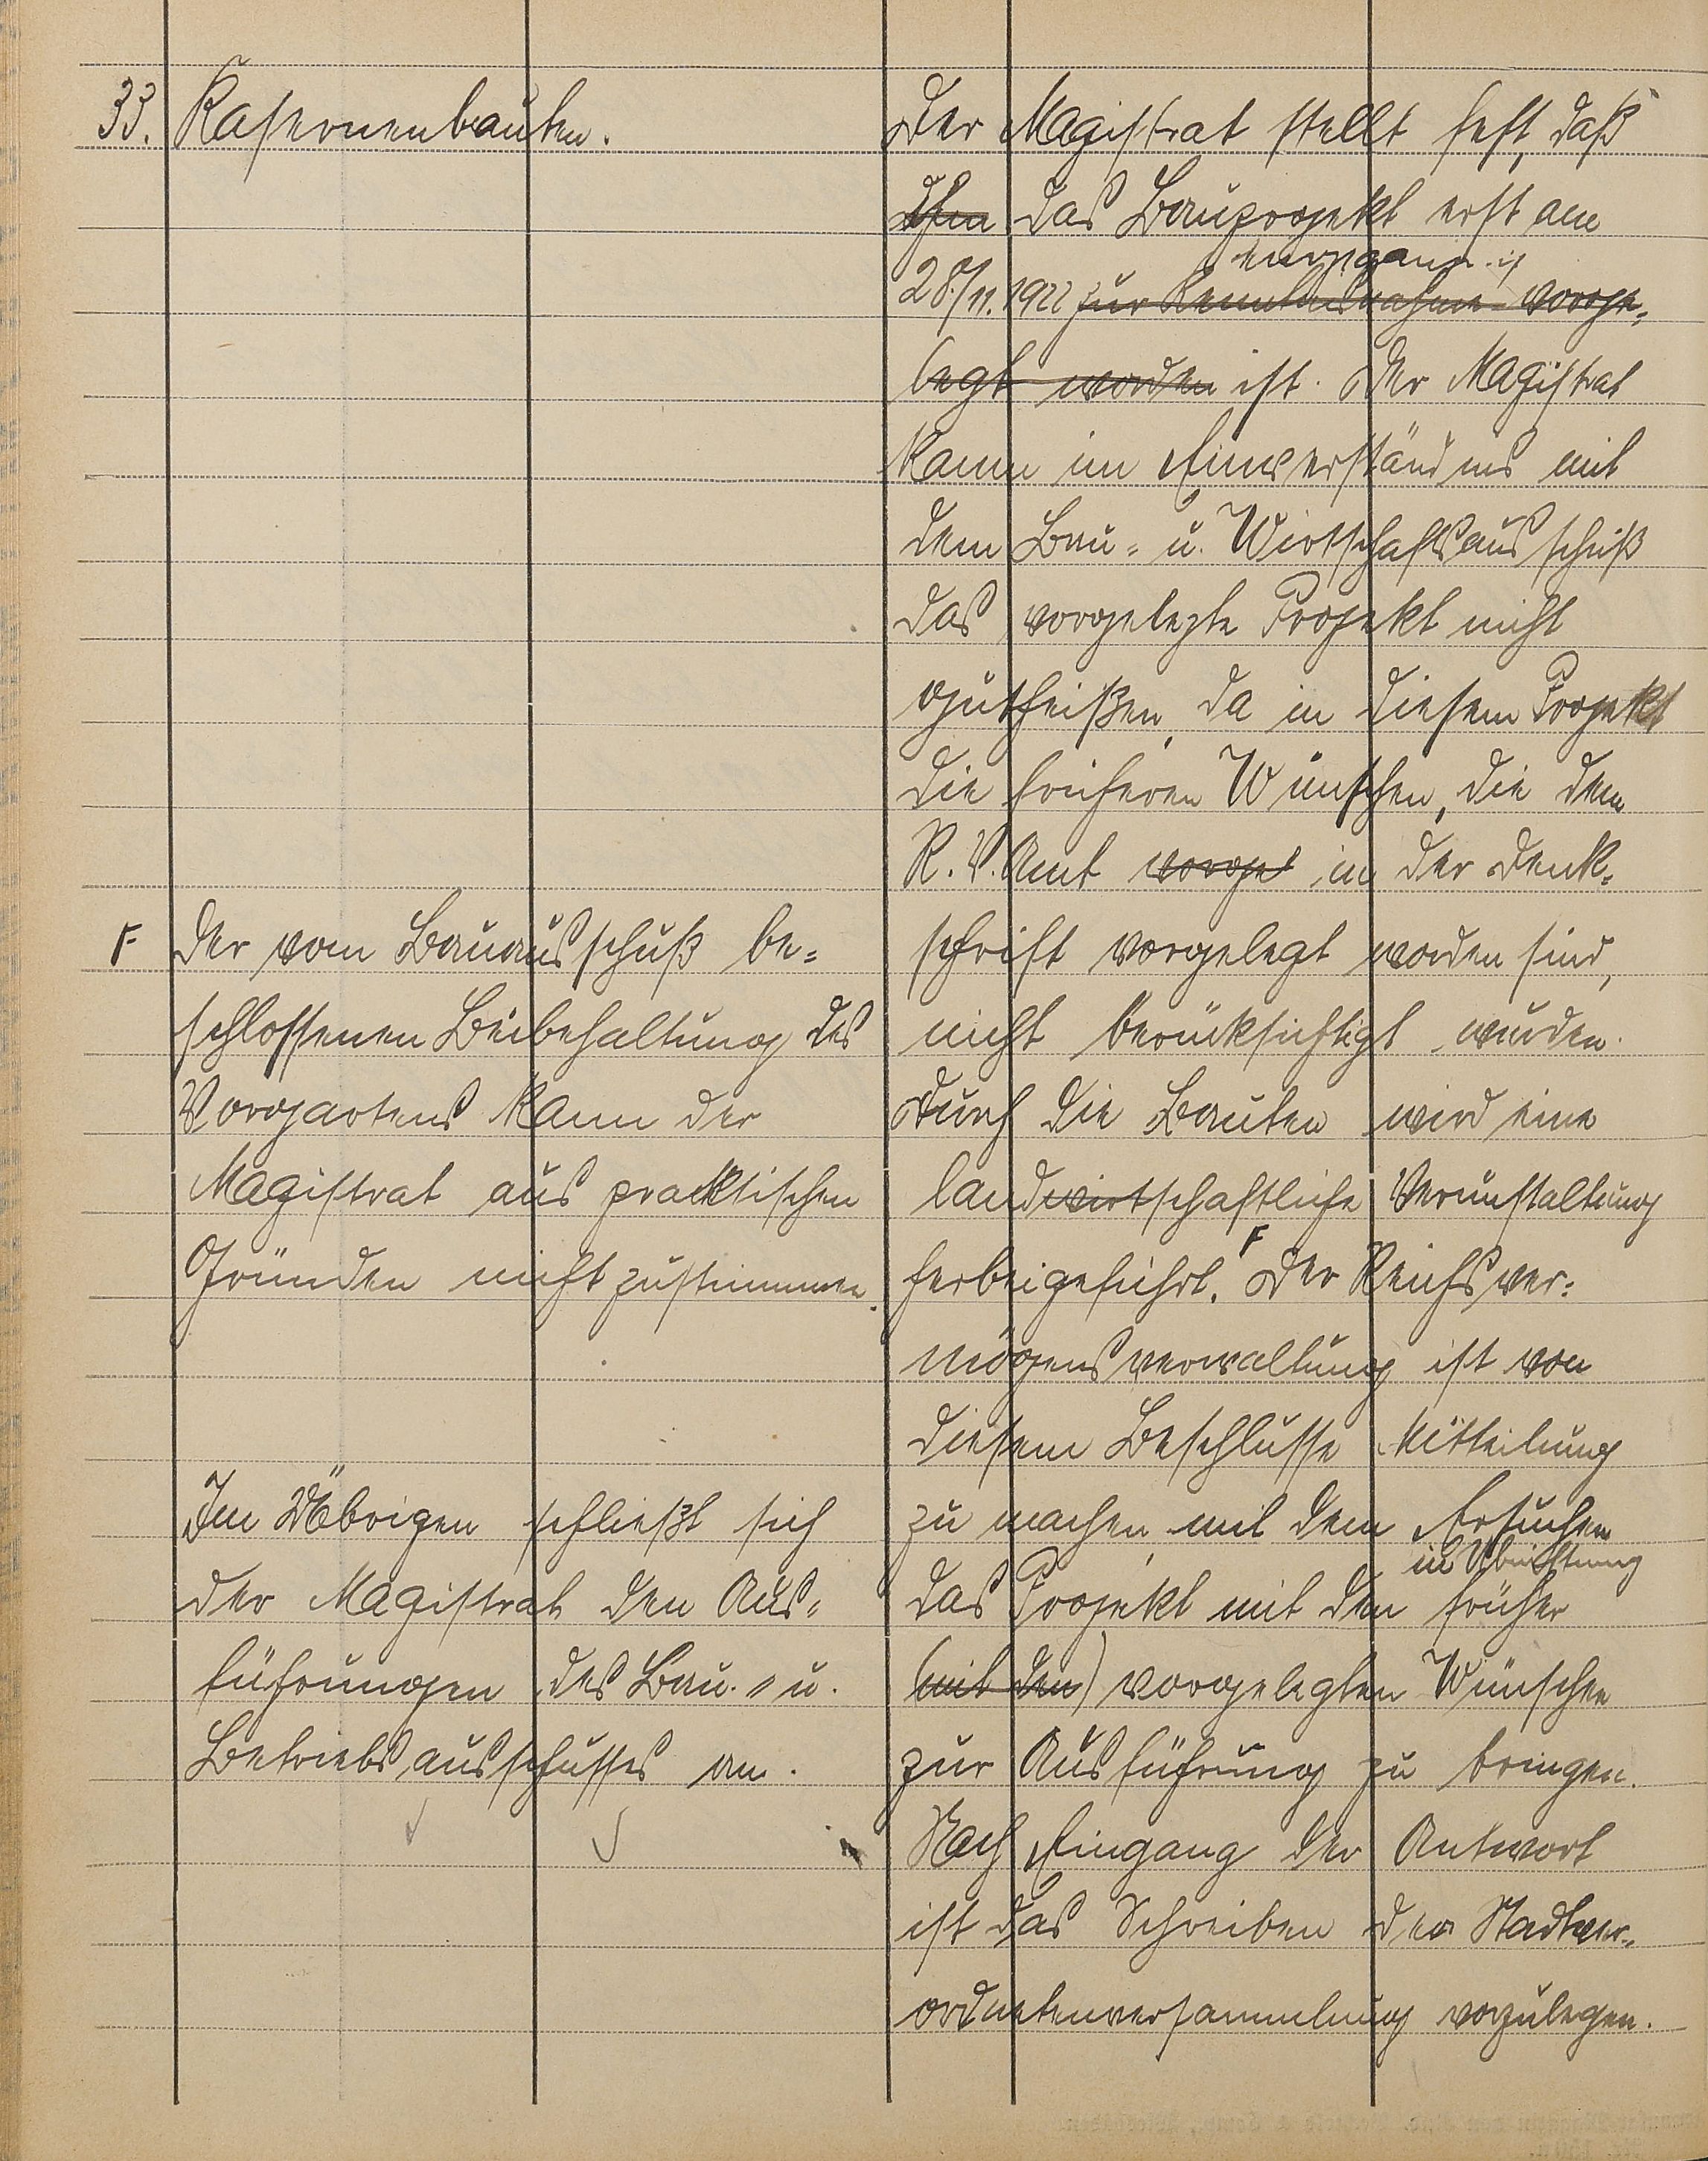 33. Kasernenbauten.
Der vom Bauausschuß be-
schlossenen Beibehaltung des
Vorgartens kann der
Magistrat aus praktischen
Gründen nicht zustimmen.
Im Übrigen schließt sich
der Magistrat den Aus-
führungen des Bau- u.
Betriebsausschusses an.
Der Magistrat stellt fest, daß
ihm das Bauprojekt erst am
eingegangen
28./11. 1922 zur Kenntnisnahme vorge-
legt worden ist. Der Magistrat
kann im Einverständnis mit
dem Bau- u. Wirtschaftsausschuß
das vorgelegte Projekt nicht
gutheißen, da in diesem Projekt
die früheren Wünschen, die dem
R. V. Amt vorgel in der Denk-
schrift vorgelegt worden sind,
nicht berücksichtigt wurden.
Durch die Bauten wird eine
landwirtschaftliche Verunstaltung
herbeigeführt. F Der Reichsver-
mögensverwaltung ist von
diesem Beschlusse Mitteilung
zu machen, mit dem Ersuchen
das Projekt mit den früher
(mit den) vorgelegten Wünschen
zur Ausführung zu bringen.
Nach Eingang der Antwort
ist das Schreiben der Stadtver-
ordnetenversammlung vorzulegen.